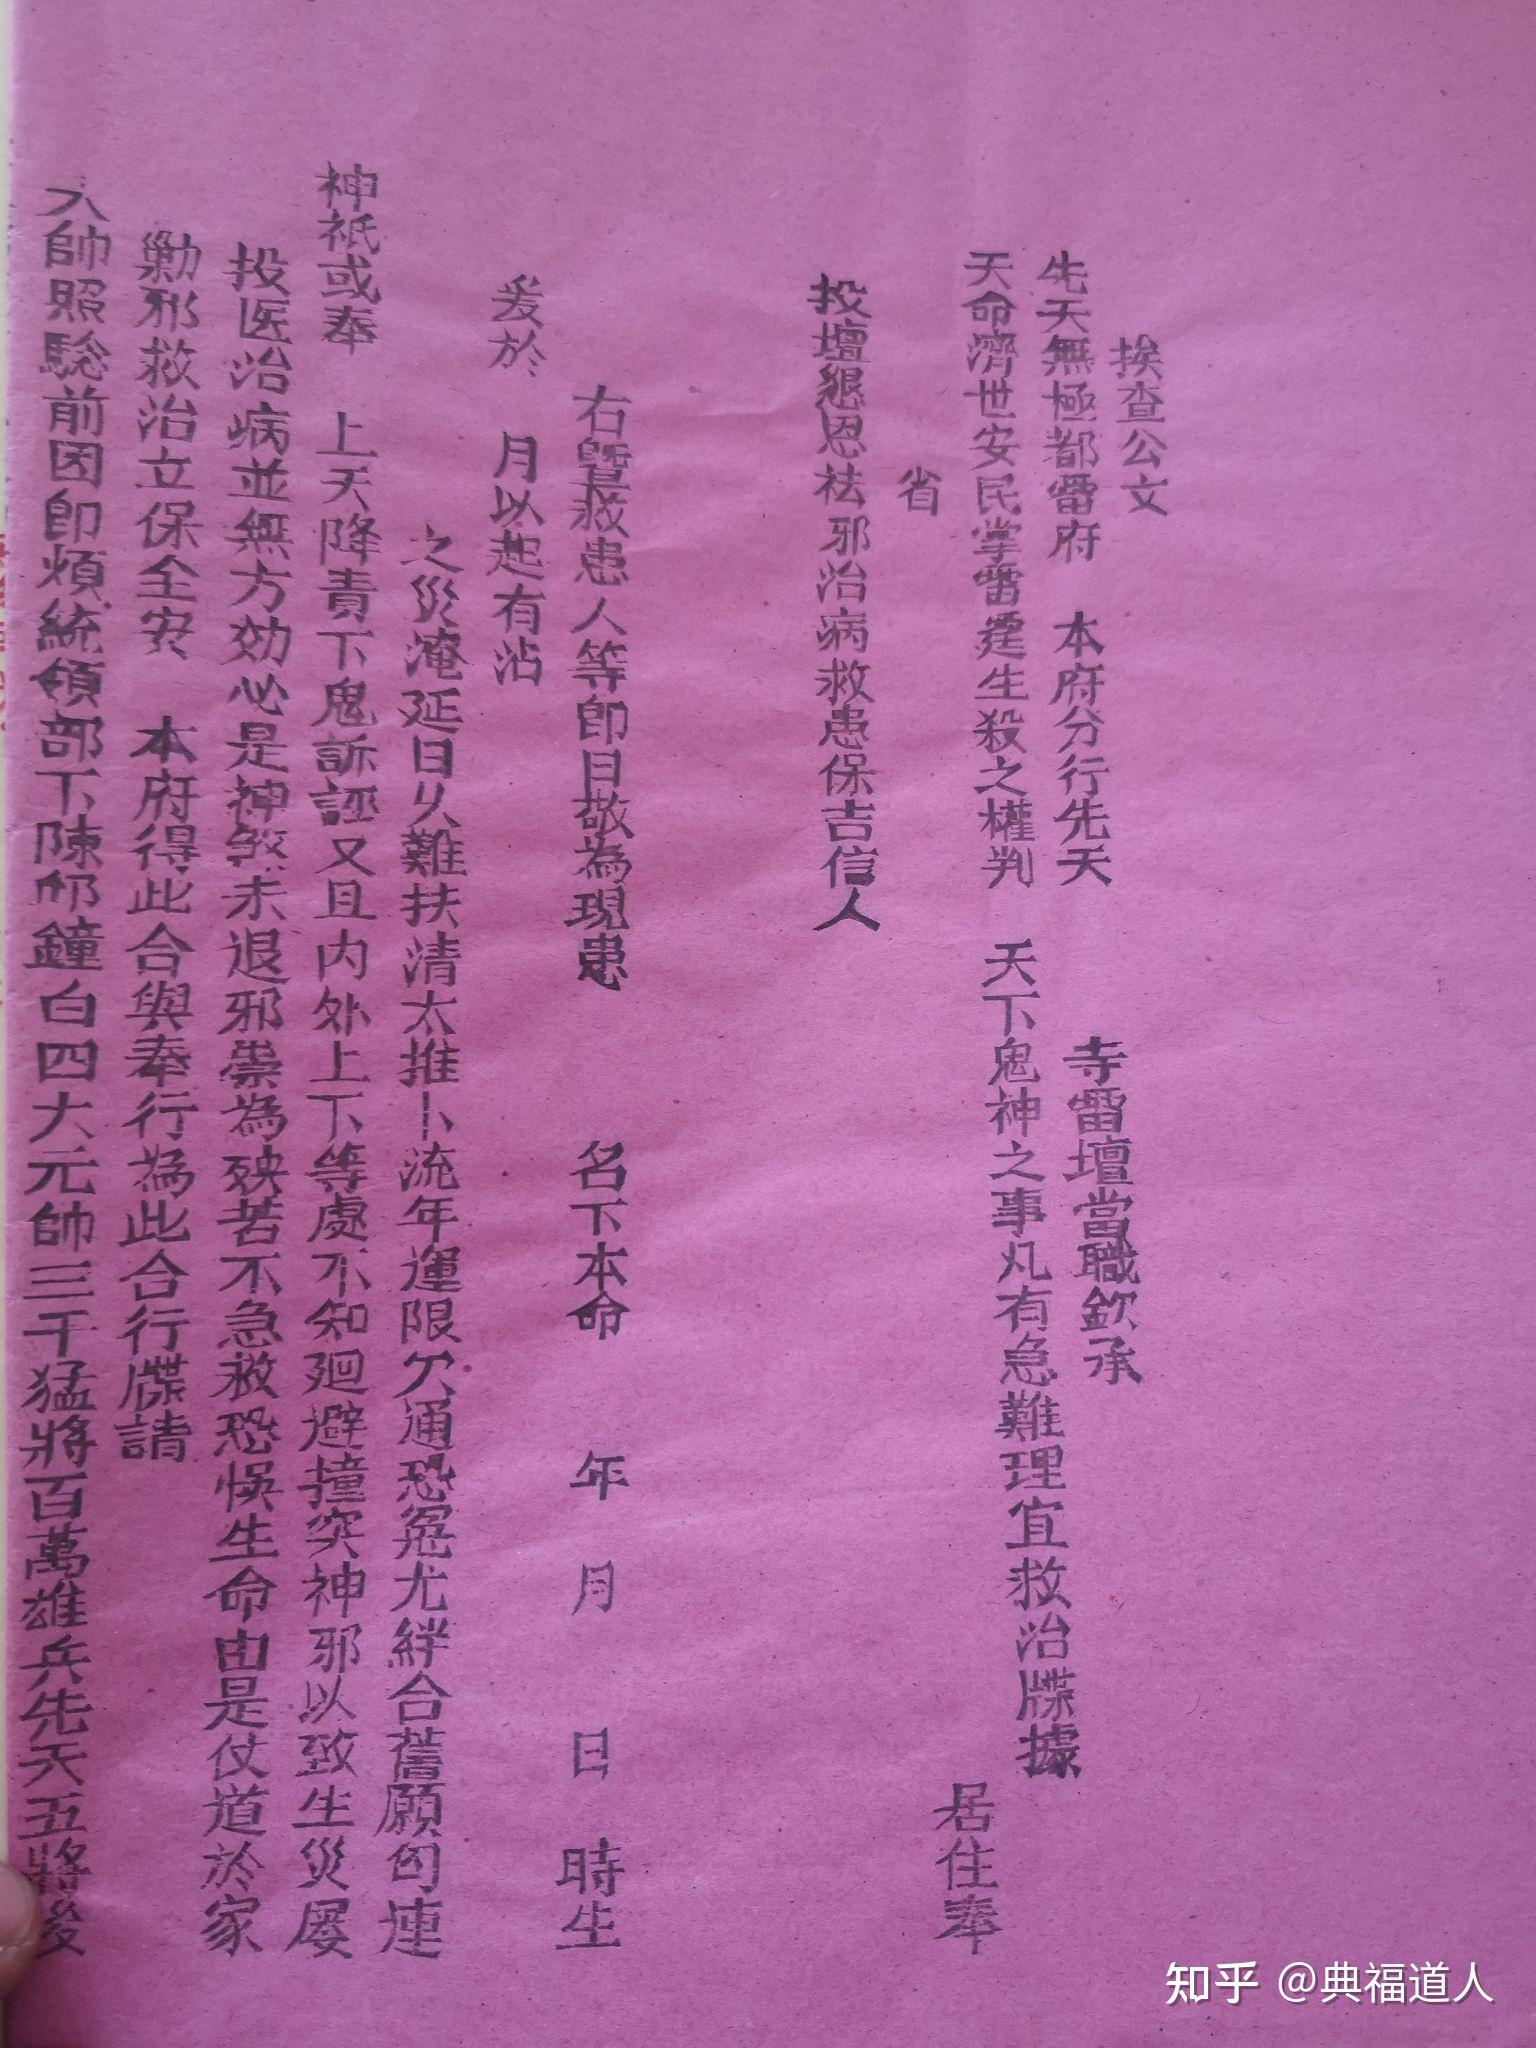 挨查公文
先天無極都雷府 本府分行先天 寺雷壇當職欽承
天命濟世安民掌雷霆生殺之權判 天下鬼神之事凡有急難理宜救治牒據
省 居住奉
投壇懇恩祛邪治病救患保吉信人
右暨救患人等即日敬為現患 名下本命 年 月 日 時生
爰於 月以起有沾
之災淹延日久難扶清太推卜流年運限欠通恐冤尤絆合舊願勾連
神祇或奉 上天降責下鬼訴誣又且内外上下等處不知廻避撞突神邪以致生災屡
投医治病並無方効必是神煞未退邪祟為殃若不急救恐悞生命由是仗道於家
勦邪救治立保全安 本府得此合與奉行為此合行牒請
帥照驗前因即煩統領部下陳邓鐘白四大元帥三千猛將百萬雄兵先天五將
知乎 @典福道人